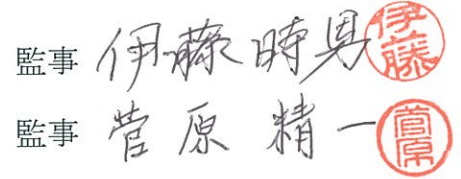 監事 伊藤時男 伊藤
監事 菅原精一 菅原